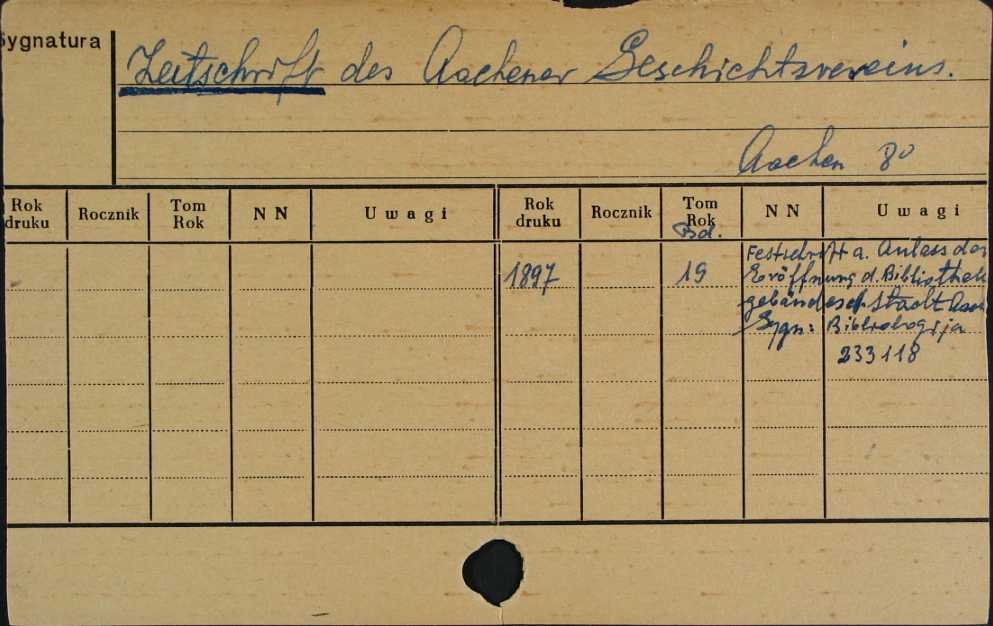 Sygnatura
Zeitschrift des Aachener Geschichtsvereins.
Aachen 8º
Rok druku Rocznik Tom Rok NN Uwagi Rok druku Rocznik Tom Rok NN Uwagi
Bd.
1897 19 Festschrift a. Anlass der
Eröffnung d. Bibliothek
gebäudes d. Stadt Aach
Sygn: Bibliologija
233118